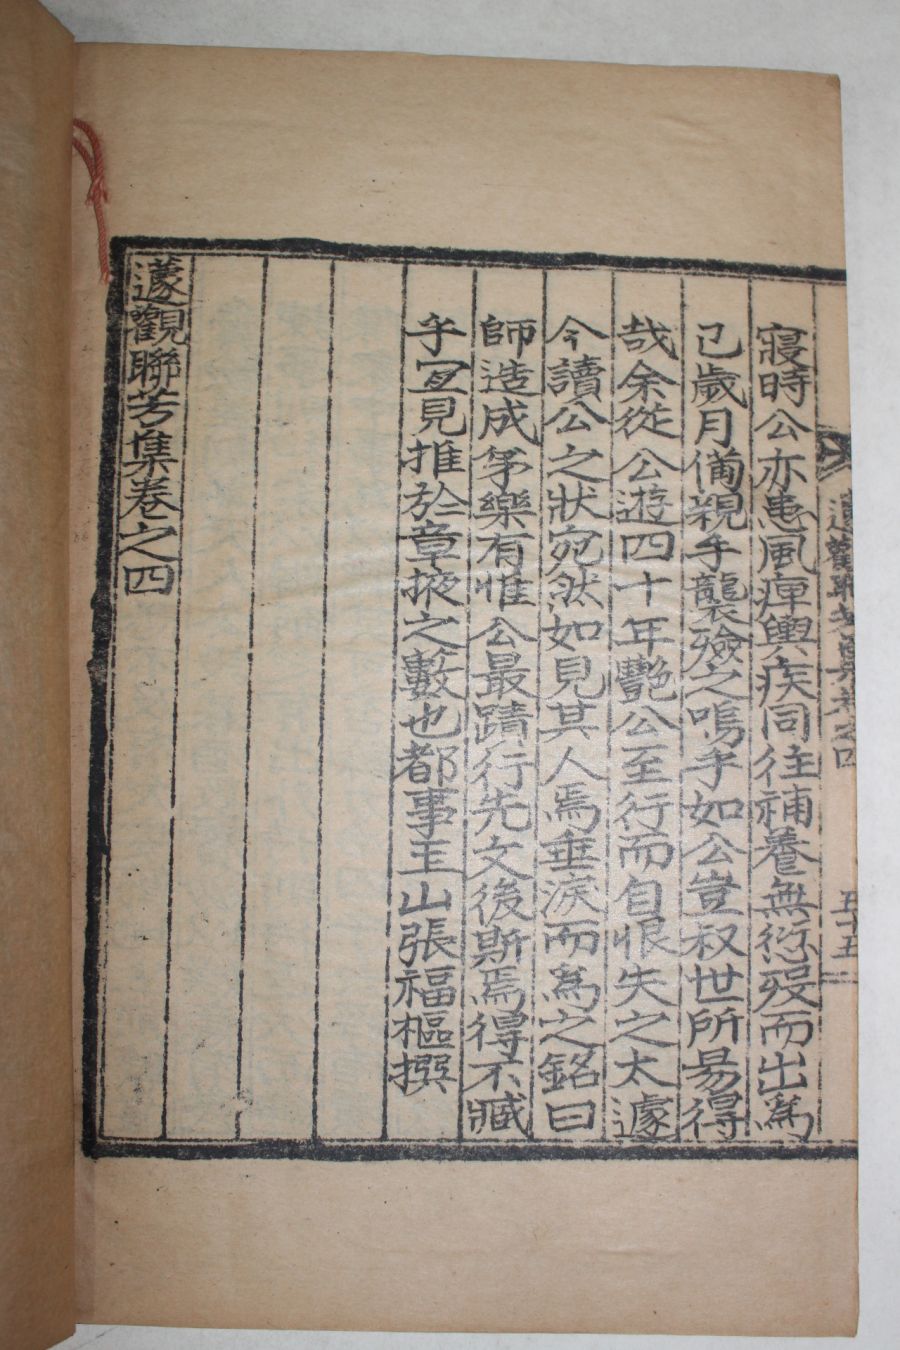 蘧觀聯芳集卷之四
五十五
寢時公亦患風痺輿疾同往補養無愆歿而出為
己歲月備親手襲殮之嗚乎如公豈叔世所易得
哉余從公遊四十年艷公至行而自恨失之太遽
今讀公之狀宛然如見其人焉垂淚而為之銘曰
師造成笌樂有惟公最蹟行先文後斯焉得不臧
乎宜見推於章掖之藪也都事玉山張福樞撰
蘧觀聯芳集卷之四